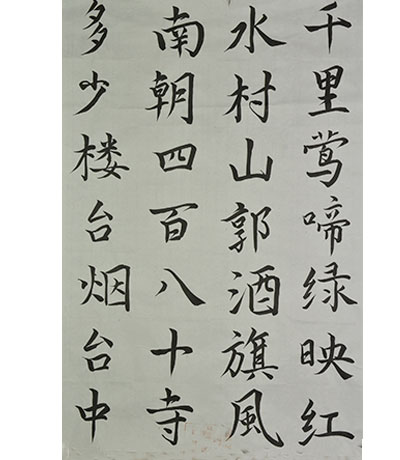 千里莺啼绿映红
水村山郭酒旗風
南朝四百八十寺
多少楼台烟台中